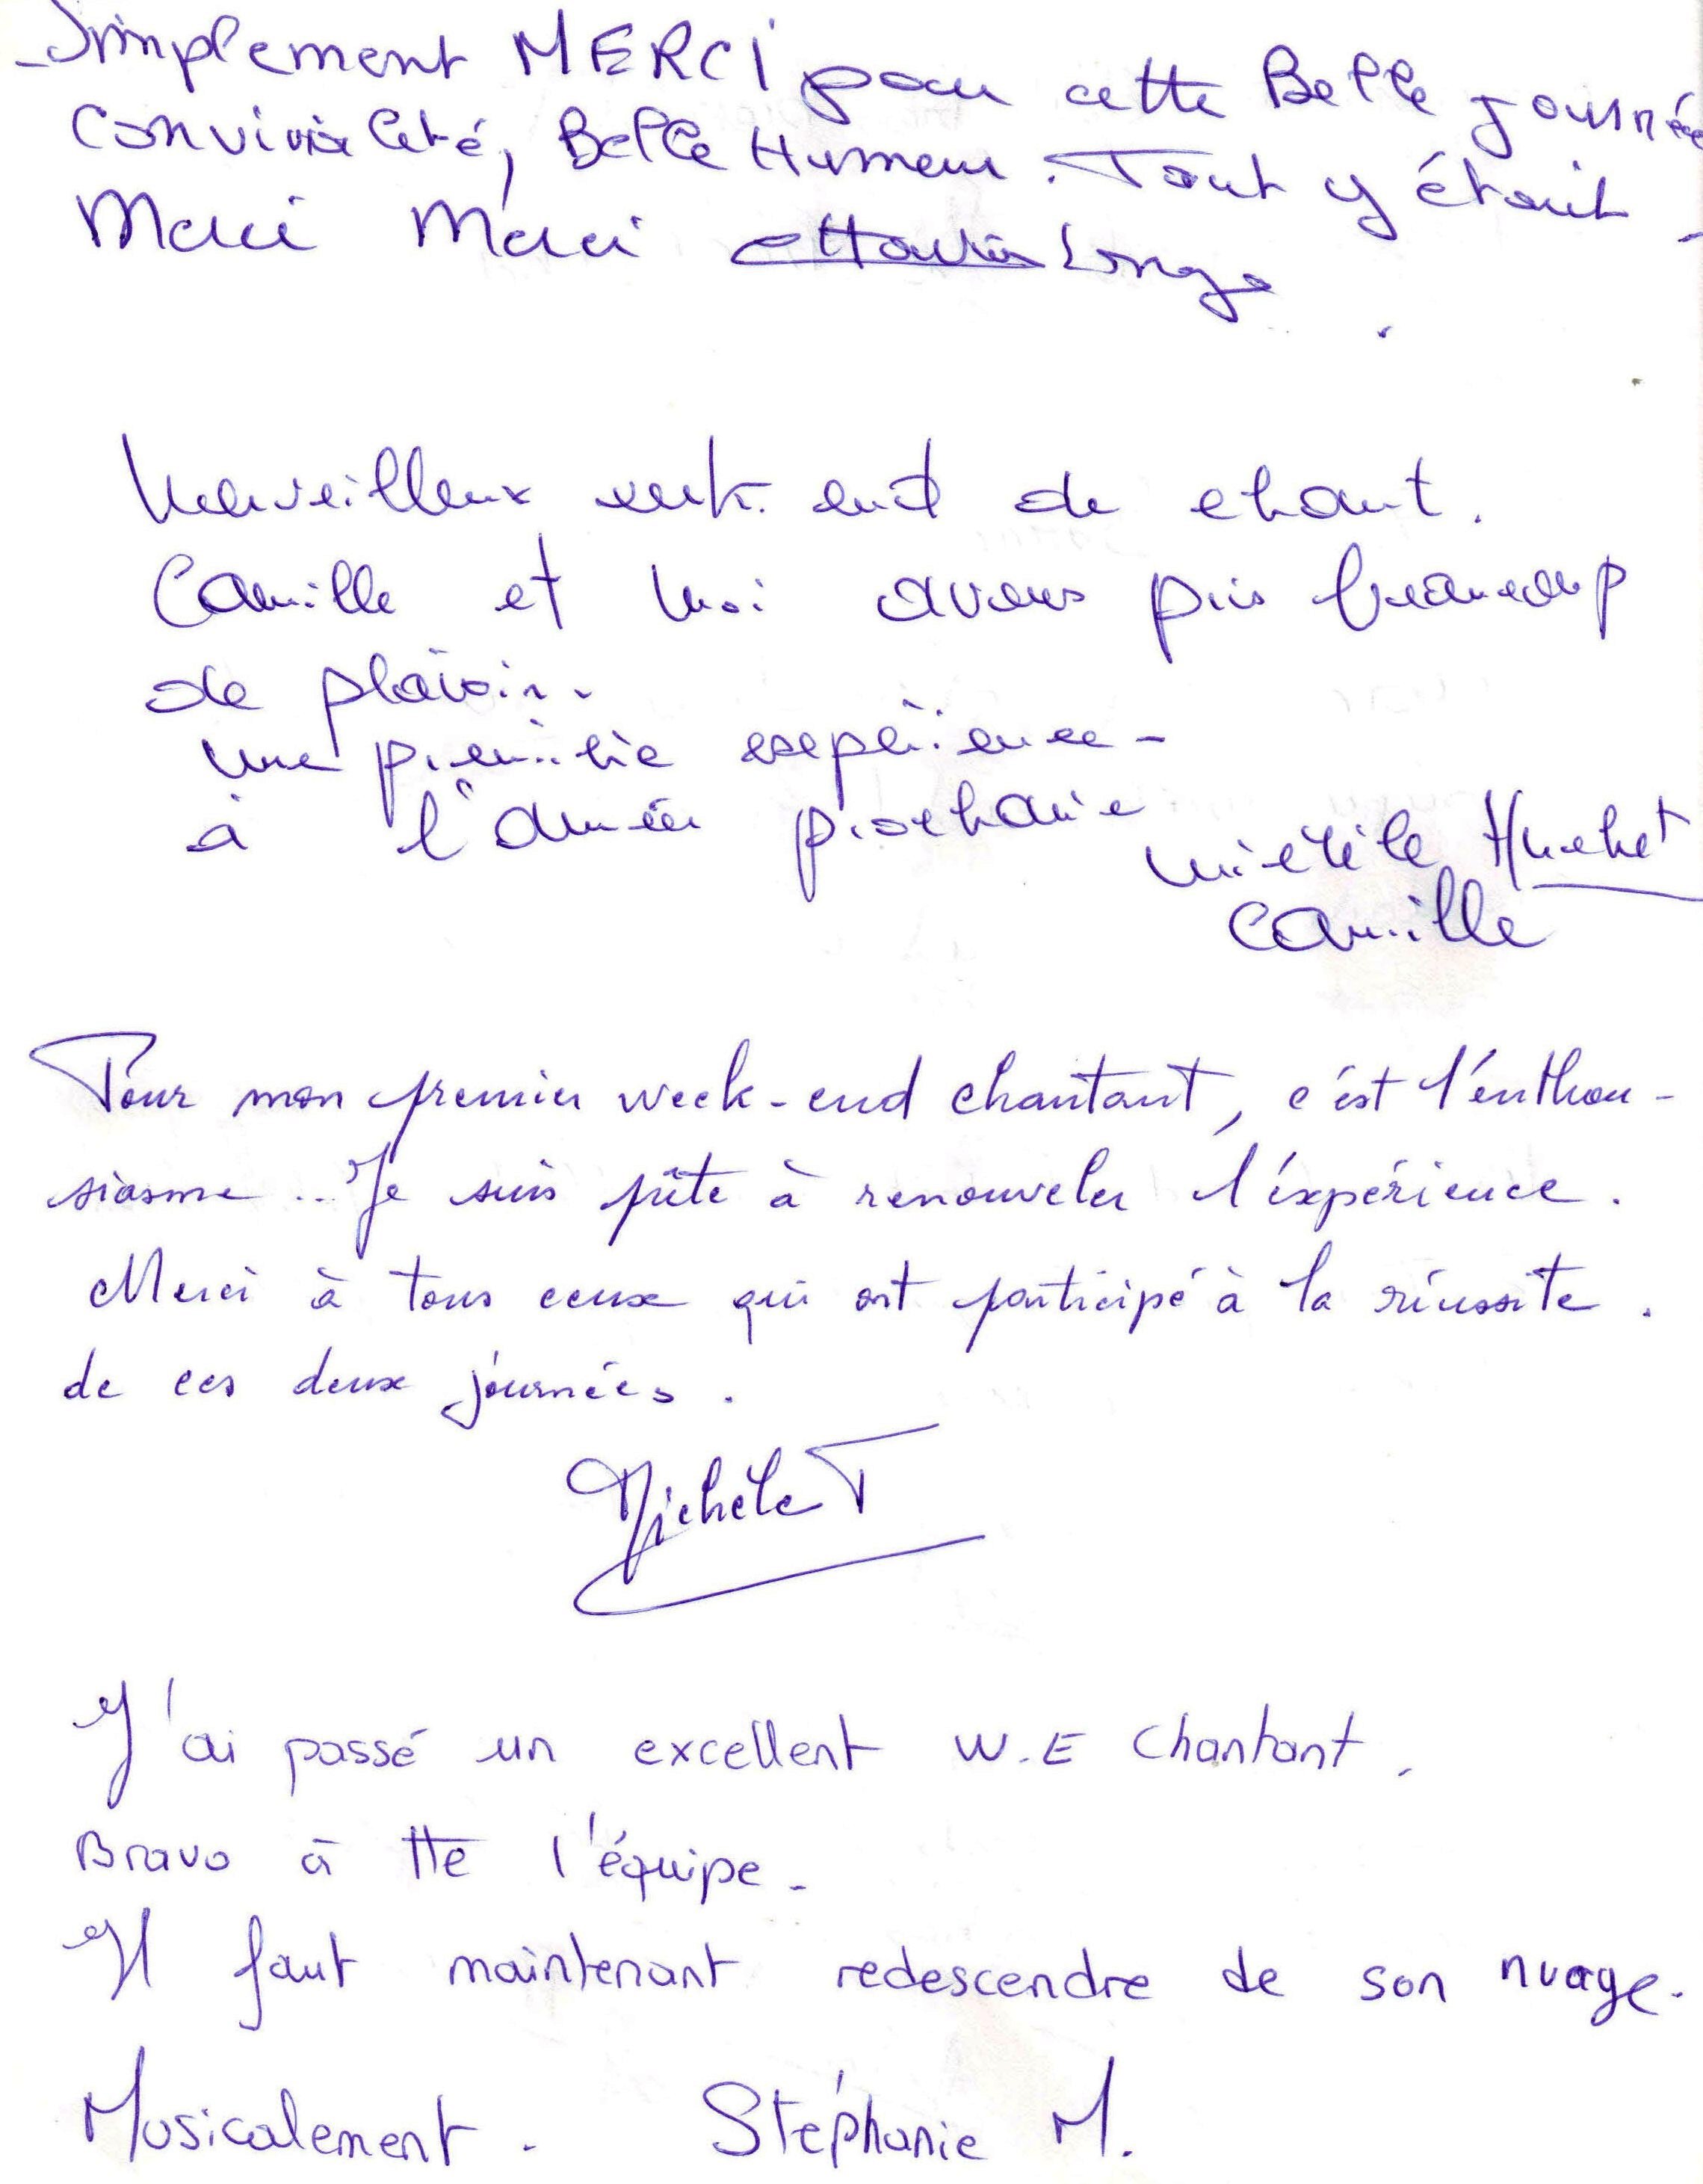 Simplement MERCI pour cette Belle journée
Convivialité, Belle Humeur. Tout y était
Merci Merci
Merveilleux week. end de chant.
Camille et moi avons pris beaucoup
de plaisir.
une première expérience -
à l'année prochaine
Mireille Huchet
Camille
Pour mon premier week-end chantant, c'est l'enthou-
siasme... Je suis prête à renouveler l'expérience.
Merci à tous ceux qui ont participé à la réussite.
de ces deux journées.
Michèle T
J'ai passé un excellent W.E Chantant.
Bravo à tte l'équipe.
Il faut maintenant redescendre de son nuage.
Musicalement. Stéphanie M.